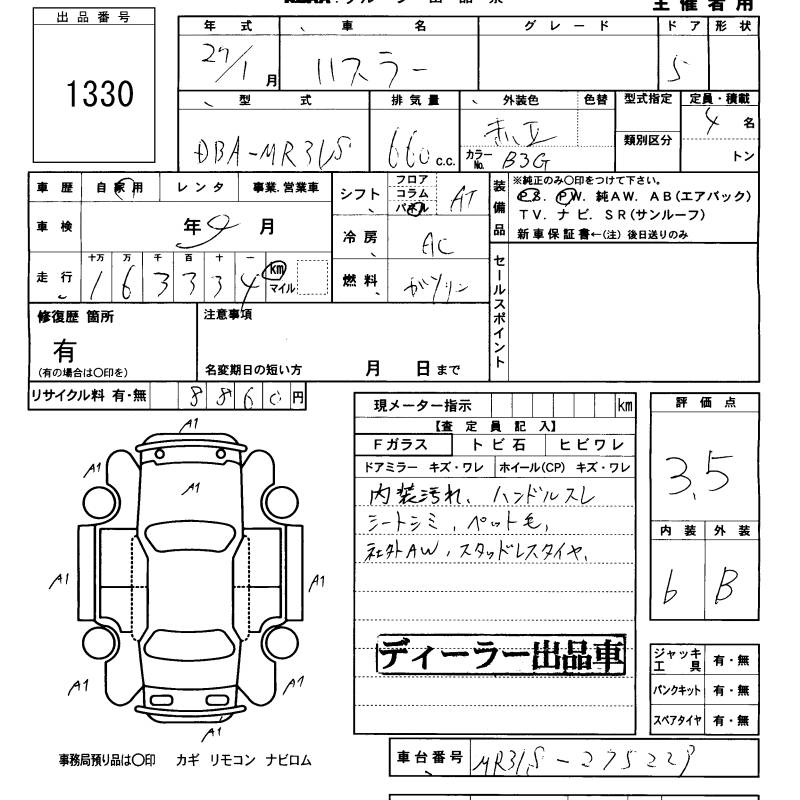 主催者用
出品番号
1330
年式 車名 グレード ドア 形状
27/1 月 ハスラー 5
型式 排気量 外装色 色替 型式指定 定員・積載
DBA-MR31S 660 c.c. 赤II カラーNo. B3G 類別区分 4 名
トン
車歴 自家用 レンタ 事業.営業車
車検 年 9 月
走行 十万 万 千 百 十 一
1 6 3 3 3 4 km マイル
シフト フロア コラム パネル AT
冷房 AC
燃料 ガソリン
装備品
※純正のみ〇印をつけて下さい。
P.S. P.W. 純AW. AB(エアバック)
TV. ナビ. SR(サンルーフ)
新車保証書←(注)後日送りのみ
セールスポイント
修復歴 箇所
有
(有の場合は〇印を)
注意事項
名変期日の短い方 月 日まで
リサイクル料 有・無 8860円
現メーター指示 km
【査定員記入】
Fガラス トビ石 ヒビワレ
ドアミラー キズ・ワレ ホイール(CP) キズ・ワレ
内装汚れ、ハンドルスレ
シートシミ、ペット毛、
社外AW、スタッドレスタイヤ、
ディーラー出品車
評価点
3.5
内装 外装
b B
ジャッキ工具 有・無
パンクキット 有・無
スペアタイヤ 有・無
A1
A1
A1
A1
A1
A1
A1
A1
A1
事務局預り品は〇印 カギ リモコン ナビロム
車台番号 MR31S-275229